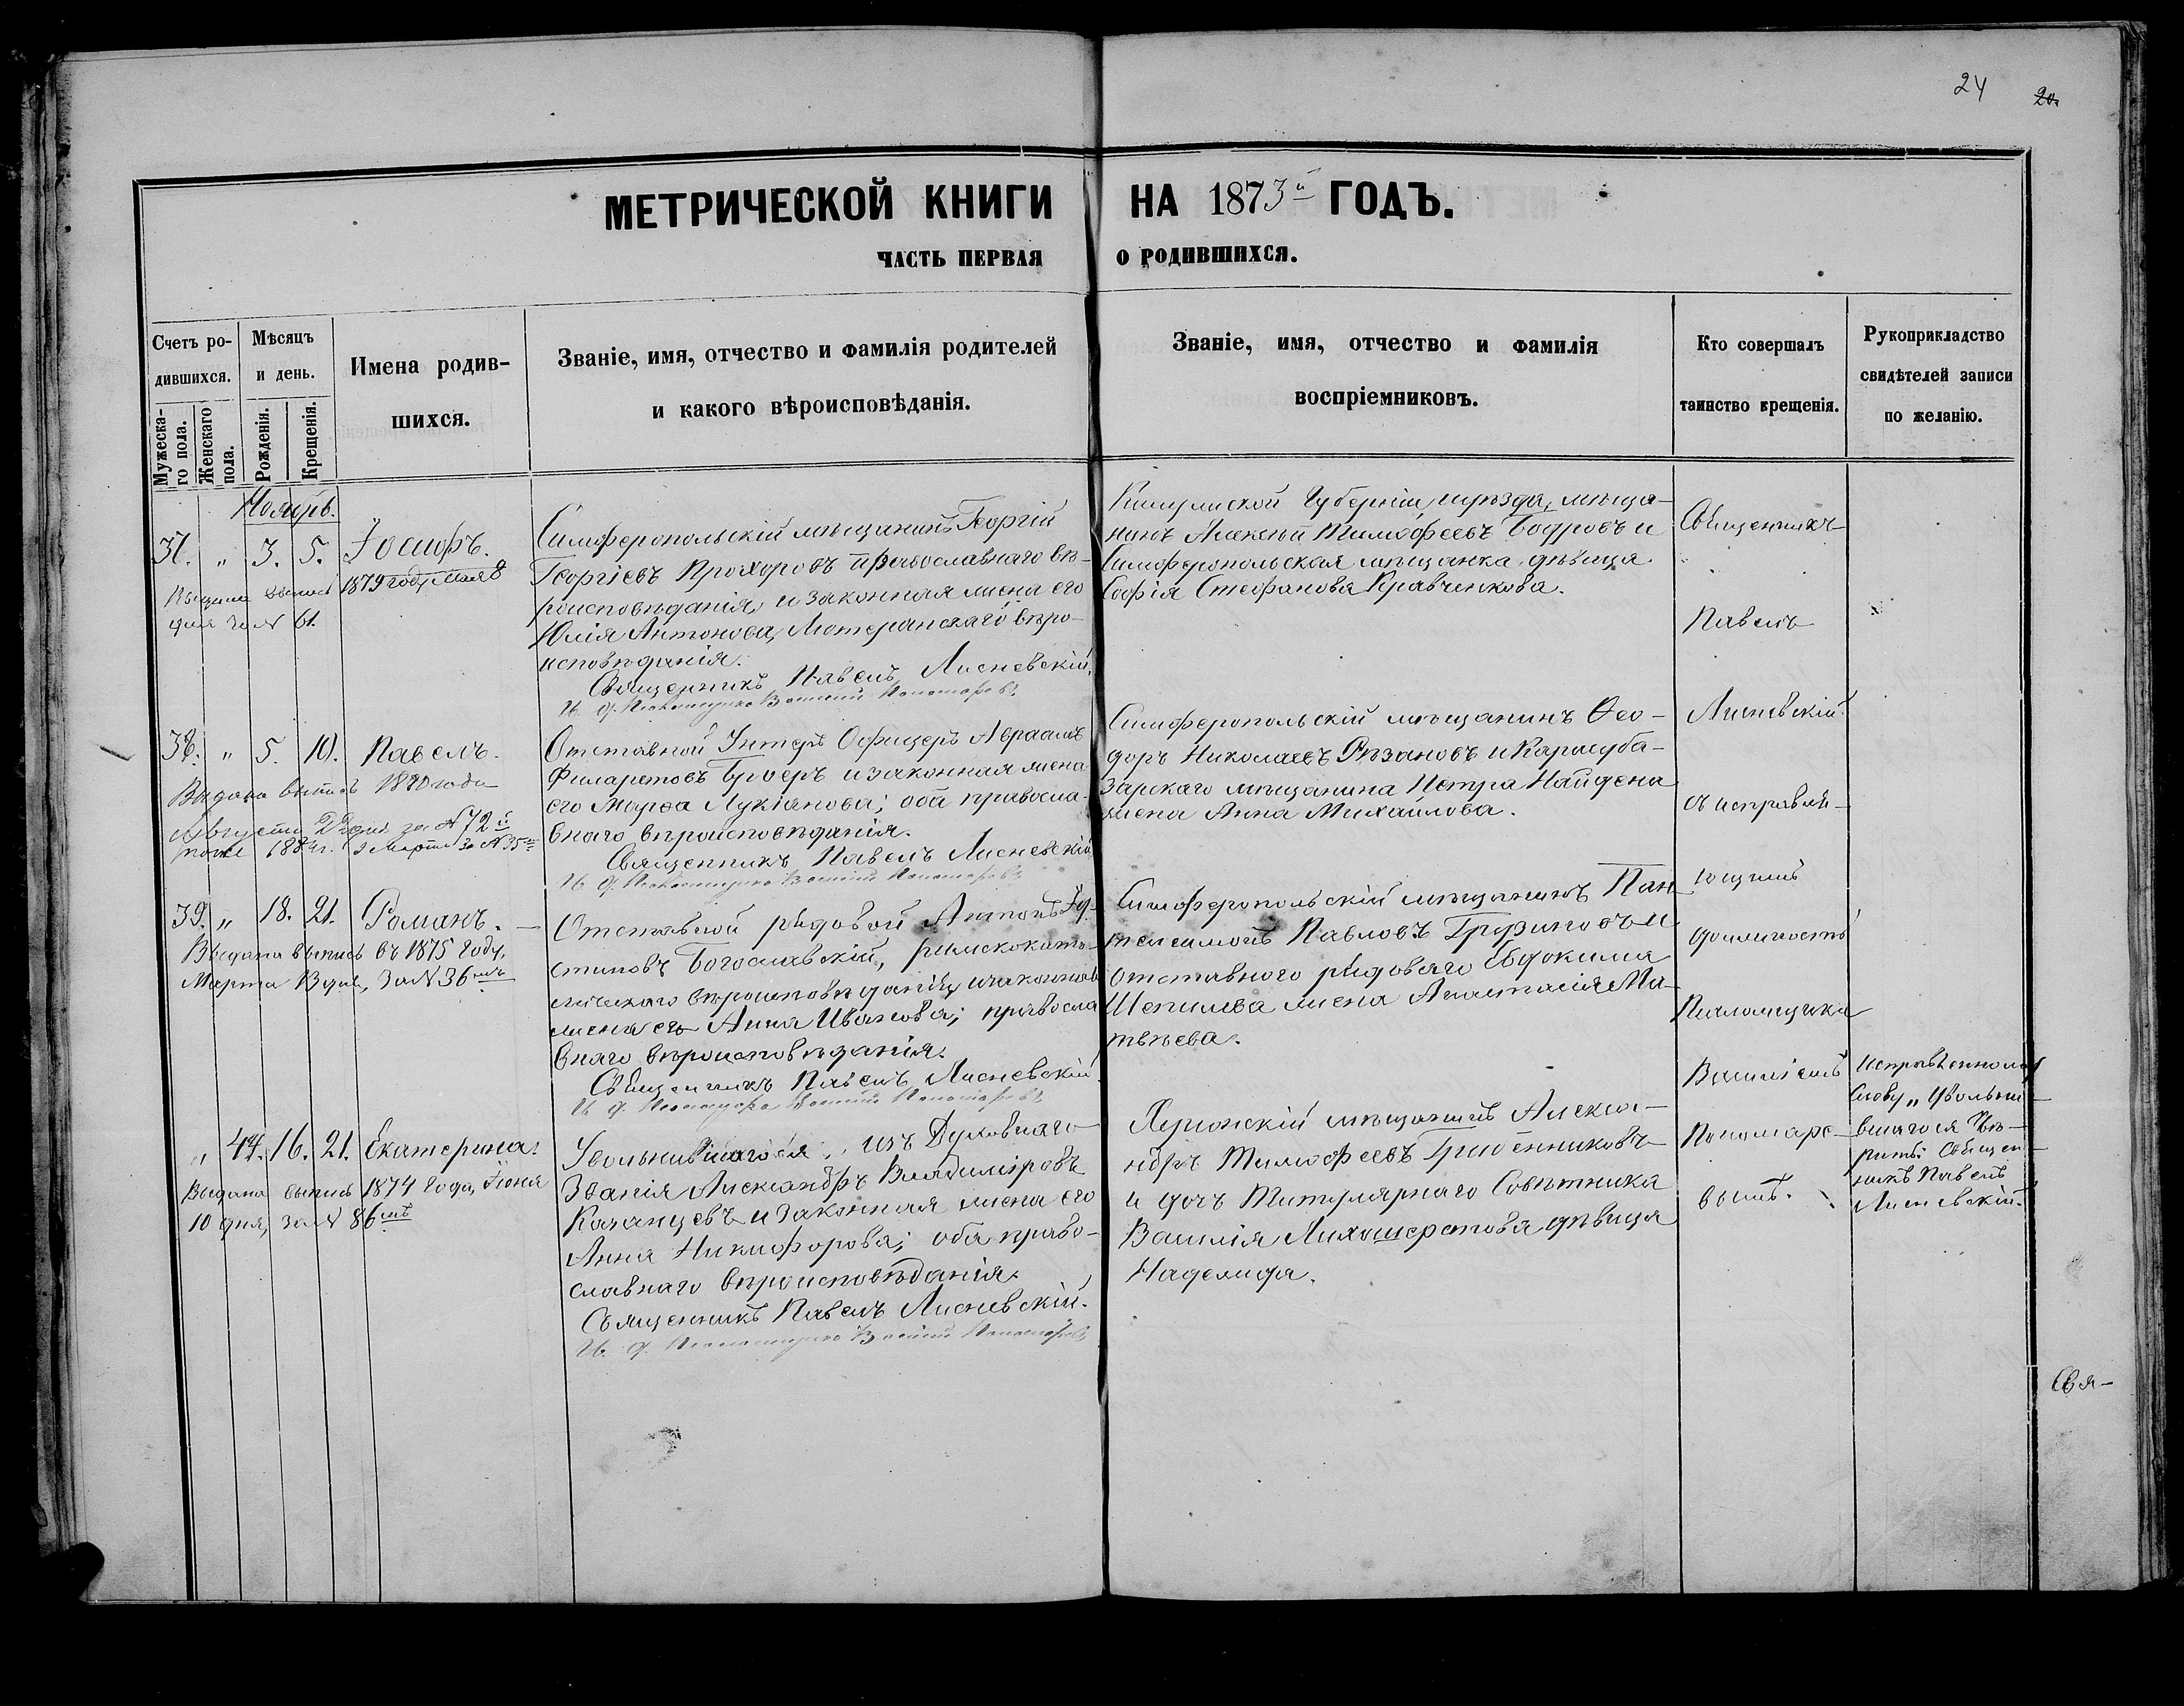 24 20.
МЕТРИЧЕСКОЙ КНИГИ НА 1873й ГОДЪ.
ЧАСТЬ ПЕРВАЯ О РОДИВШИХСЯ.
Счетъ ро-
дившихся.
Мужеска-
го пола.
Женскаго
пола.
Мѣсяцъ
и день.
Рожденія.
Крещенія.
Имена родив-
шихся.
Званіе, имя, отчество и фамилія родителей
и какого вѣроисповѣданія.
Званіе, имя, отчество и фамилія
воспріемниковъ.
Кто совершалъ
таинство крещенія.
Рукоприкладство
свидѣтелей записи
по желанію.
Ноябрь.
37. " 3. 5. Іосифъ.
выпись 1879 года, Мая 8
дня за № 61.
Симферопольскій мѣщанинъ Георгій
Георгіевъ Прохоровъ православнаго вѣ-
роисповѣданія, и законная жена его
Юлія Антонова, Лютеранскаго вѣро-
исповѣданія.
Священникъ Павелъ Лисневскій.
И. д. Псаломщика Василій Пономаревъ.
Губерніи, уѣзда, мѣща-
нинъ Алексѣй Тимофеевъ Бодровъ и
Симферопольская мѣщанка, дѣвица
Софія Стефанова Кравченкова.
38. " 5. 10. Павелъ.
Выдана выпись 1880 года
Августа 22 дня за № 72й
тоже 1884 г. 2 Марта за № 35мъ
Отставной Унтеръ Офицеръ Авраамъ
Филаретовъ и законная жена
его Марѳа Лукіанова; оба правосла-
внаго вѣроисповѣданія.
Священникъ Павелъ Лисневскій
И. д. Псаломщика Василій Пономаревъ
Симферопольскій мѣщанинъ Ѳео-
доръ Николаевъ Рѣзановъ и Карасуба-
зарскаго мѣщанина Петра Найдена
жена Анна Михайлова.
39. " 18. 21. Романъ.
Выдана выпись въ 1875 году,
Марта 13 дня, за № 36мъ
Отставной рядовой Антонъ
Богославскій, римскокато-
лическаго вѣроисповѣданія, и законная
жена его Анна Иванова; правосла
внаго вѣроисповѣданія.
Священникъ Павелъ Лисневскій.
И. д. Псаломщика Василій Пономаревъ.
Симферопольскій мѣщанинъ Пан
телеимонъ Павловъ Грузиновъ и
отставного рядоваго Евдокима
жена Анастасія Ма-
твѣева.
" 44. 16. 21. Екатерина.
Выдана выпись 1874 года, Іюня
10 дня, за № 86мъ
Уволнившагося, изъ Духовнаго
Званія Александръ Владиміровъ
Казанцевъ и законная жена его
Анна Никифорова; оба право-
славнаго вѣроисповѣданія.
Священникъ Павелъ Лисневскій.
И. д. Псаломщика Василій Пономаревъ
мѣщанинъ Алекса-
ндръ Тимофеевъ Гребенниковъ
и дочь Титулярнаго Совѣтника
Василія Лихошерстова дѣвица
Надежда.
Священникъ
Павелъ
Лисневскій.
съ исправля-
ющимъ
должность
Псаломщика
Василіемъ
Пономаре-
вымъ.
Исправленному
слову „Увольни-
вшагося вѣ-
рить: Священ-
никъ Павелъ
Лисневскій.
Свя-